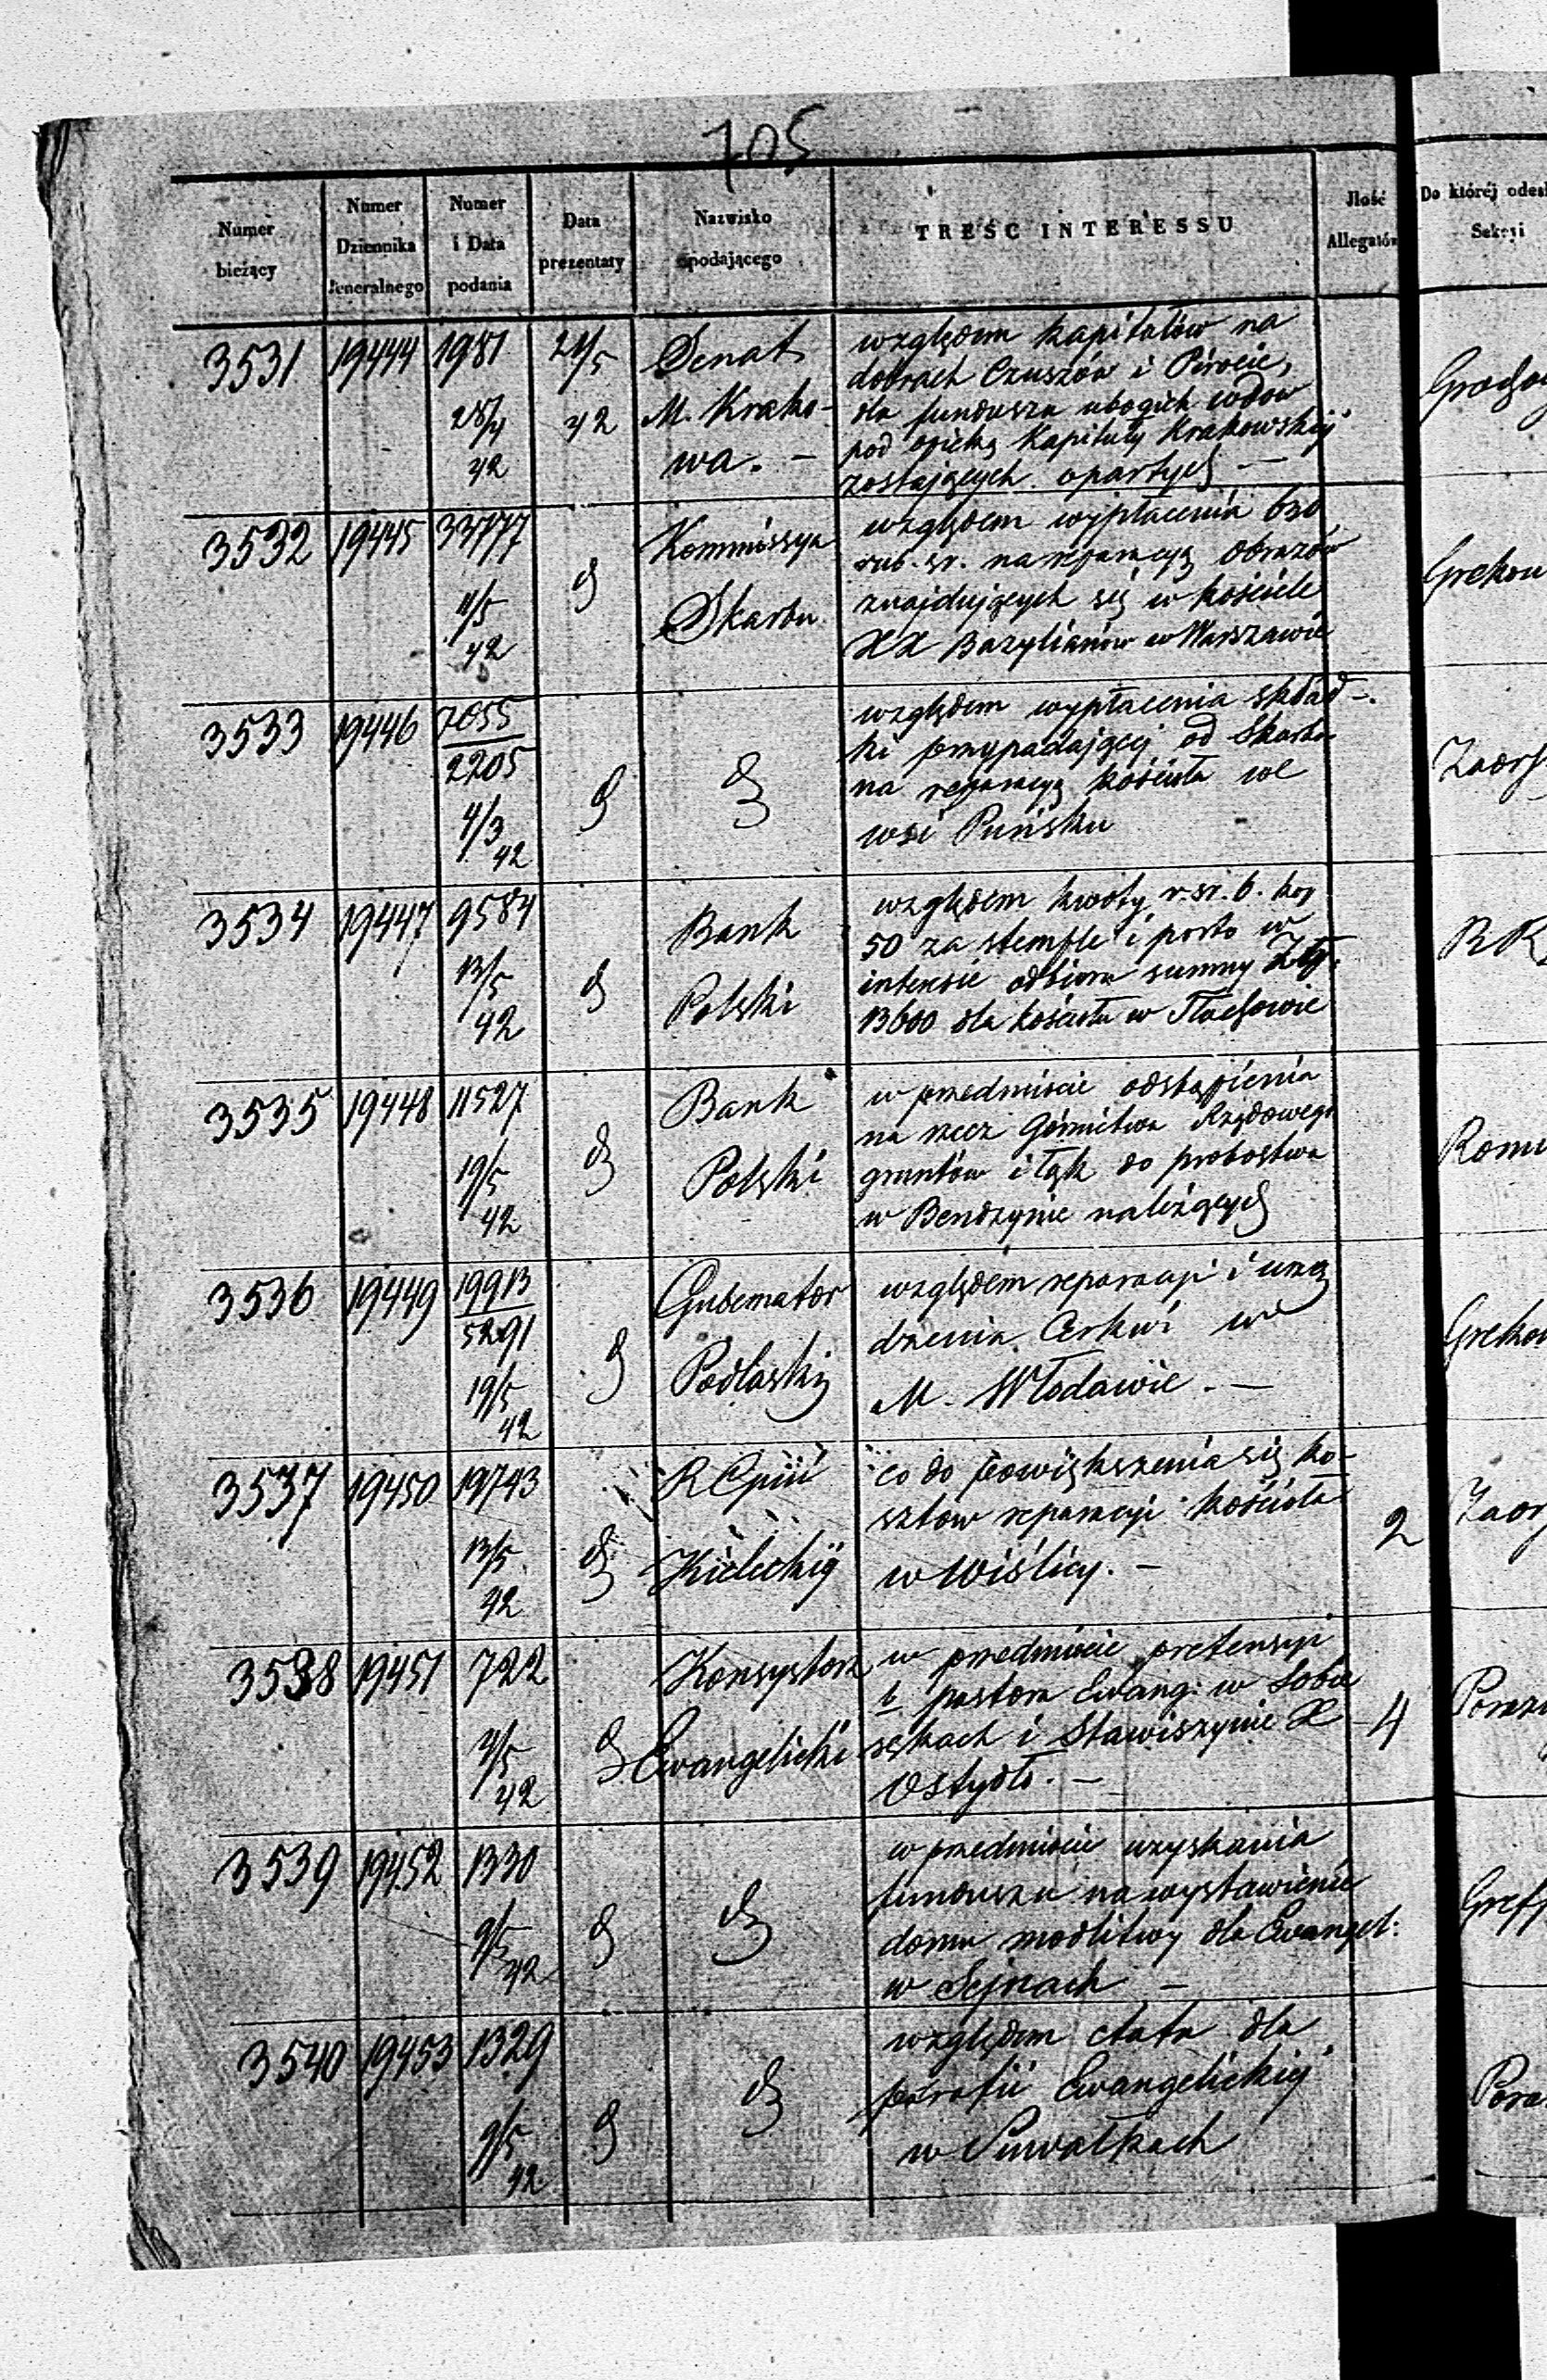 705
Numer bieżący | Numer Dziennika Jeneralnego | Numer i Data podania | Data prezentaty | Nazwisko podającego | TREŚĆ INTERESSU | Jlość Allegatów | Do któréj odesł Sekcyi
3531 | 19444 | 1981 28/4 42 | 21/5 42 | Senat M. Krako-wa. –
względem kapitałów na
dobrach Czuszów i
dla funduszu ubogich wdow
pod opieką Kapituły Krakowskiéj
zostających opartych –
3532 | 19445 | 33777 11/5 42 | d | Kommissya Skarbu
względem wypłacenia 630
rub. sr. na reparacyą obrazów
znajdujących się w kościele
XX Bazylianów w Warszawie
3533 | 19446 | 7055/2205 4/3 42 | d | d
względem wypłacenia skład-
ki przypadającej od Skarbu
na reparacyą kościoła we
wsi Puńsku
3534 | 19447 | 9584 13/5 42 | d | Bank Polski
względem kwoty r. sr. 6. kop
50 za stemple i porto w
interesie odbioru summy Złp.
13600 dla kościoła w
3535 | 19448 | 11527 19/5 42 | d | Bank Polski | Romu
w przedmiocie odstąpienia
na rzecz Górnictwa Rządowego
gruntów i łąk do probostwa
w Bendzynie należących
3536 | 19449 | 19913/5291 19/5 42 | d | Gubernator Podlaski
względem reparacyi i urzą
dzenia Cerkwi we
M. Włodawie. –
3537 | 19450 | 19743 13/5 42 | d | R Gpiii Kieleckiéj | 2
co do powiększenia się ko-
sztow reparacyi kościoła
w Wiślicy. –
3538 | 19451 | 722 42 | d | Konsystorz Ewangelicki | 4
w przedmiocie pretensyi
b pastora Ewang: w Sobie
sękach i Stawiszynie X
Ostydło. –
3539 | 19452 | 1330 9/5 42 | d | d
w przedmiocie uzyskania
funduszu na wystawienie
domu modlitwy dla Ewangel:
w Sejnach –
3540 | 19453 | 1329 9/5 42 | d | d
względem etatu dla
parafii Ewangelickiéj
w Suwałkach